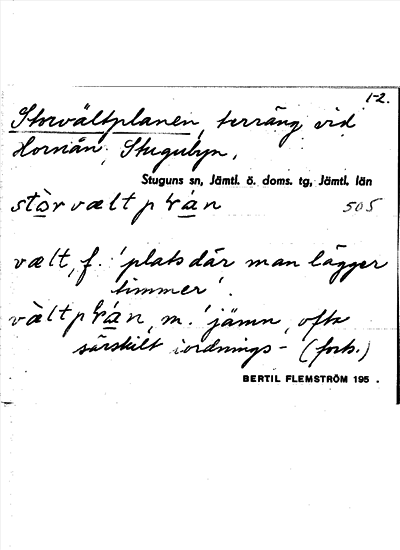 1-2.
Storvältplanen, terräng vid
Hornån, Stugubyn.
Stuguns sn, Jämtl. ö. doms. tg, Jämtl. län
stòrvæltplán 505
vælt, f. 'plats där man lägger
timmer'.
væ̀ltplán, m. 'jämn, ofta
särskilt iordnings- (forts.)
BERTIL FLEMSTRÖM 195 .